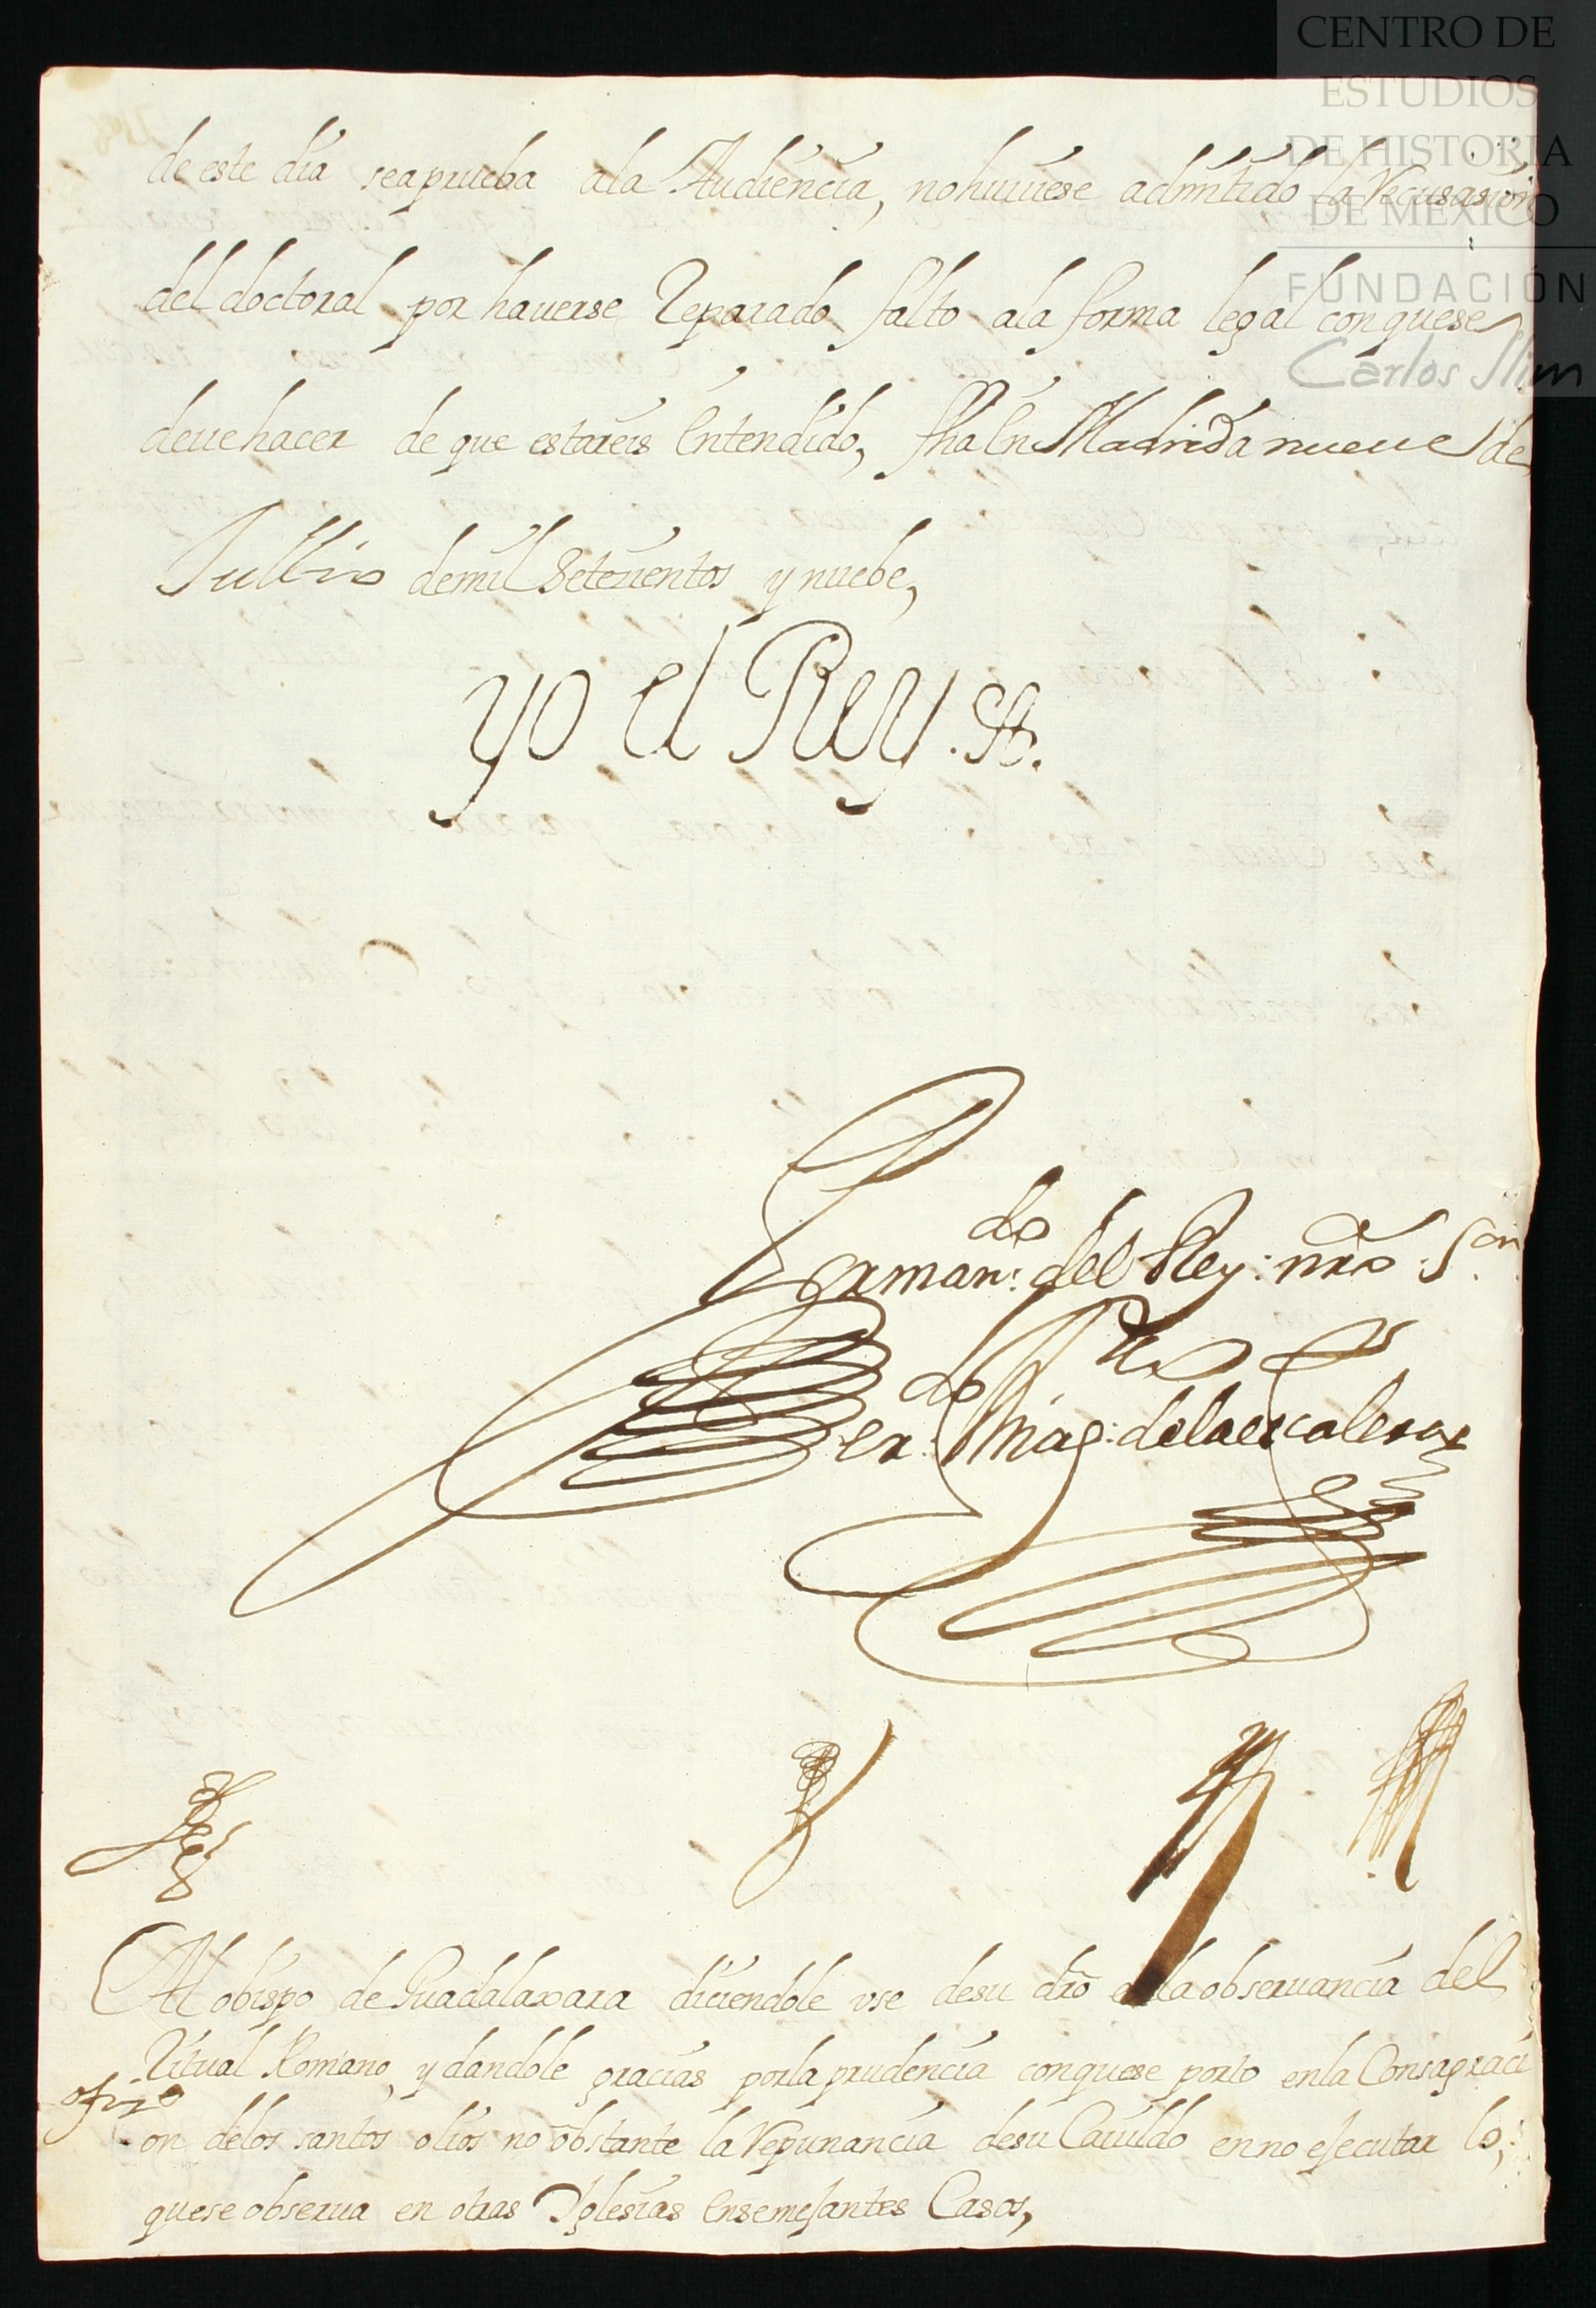 CENTRO DE
ESTUDIOS
DE HISTORIA
DE MÉXICO
FUNDACIÓN
Carlos Slim
de este dia seaprueba ala Audiencia, nohuuiese admitido la Recusasion
del doctoral por hauerse Reparado falto ala forma legal conquese
deuehacer de que estareis Entendido, fha En Madrid a nueue de
Jullio demil Setezientos y nuebe,
yo el Rey
Por mando del Rey nro Sor
de la escalera
Al obispo de Guadalaxara diciendole vse desu dro en la obseruancia del
Ritual Romano, y dandole gracias porla prudencia conquese porto enla Consagraci
ofizo
on delos santos olios no obstante la Repunancia desu Cauildo enno ejecutar lo,
quese obserua en otras Yglesias Ensemejantes Casos,